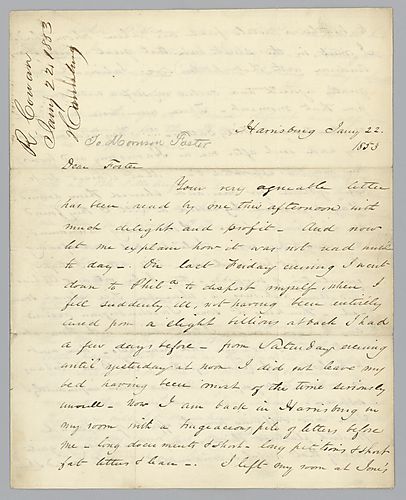 R. Cowan
Jany 22, 1853
Harrisburg
To Morrison Foster
Harrisburg Jany 22.
1853
Dear Foster
Your very agreeable letter
has been read by me this afternoon with
much delight and profit - And now
let me explain how it was not read until
to day -. On last Friday evening I went
down to Phila to disport myself, when I
fell suddenly ill, not having been entirely
cured from a slight billious attack I had
a few days before - from Saturday evening
until yesterday at noon I did not leave my
bed having been most of the time seriously
unwell - Now I am back in Harrisburg in
my room with a pile of letters before
me - long documents & short - long petitions & short
fat letters & lean -. I left my room at